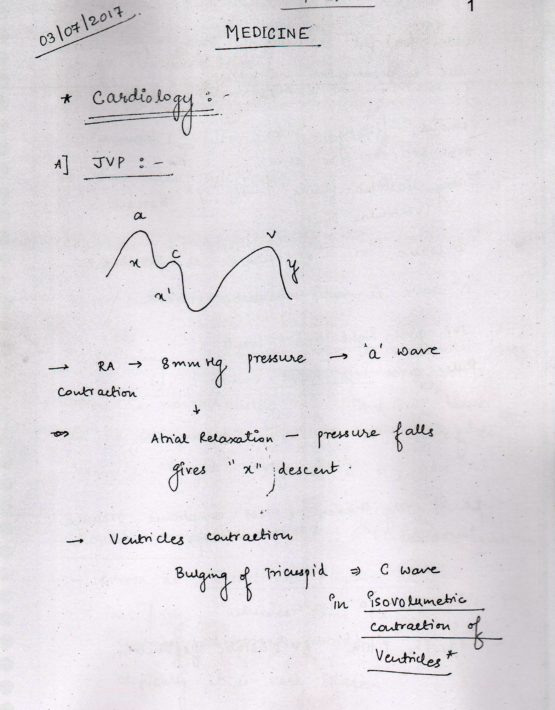 1
03/07/2017
MEDICINE
* Cardiology : -
A] JVP : -
a
v
x
c
y
x'
→ RA → 8mmHg pressure → 'a' wave
contraction
↓
Atrial Relaxation — pressure falls
gives "x" descent.
→ Ventricles contraction
Bulging of Tricuspid ⇒ C wave
in isovolumetric
contraction of
Ventricles*